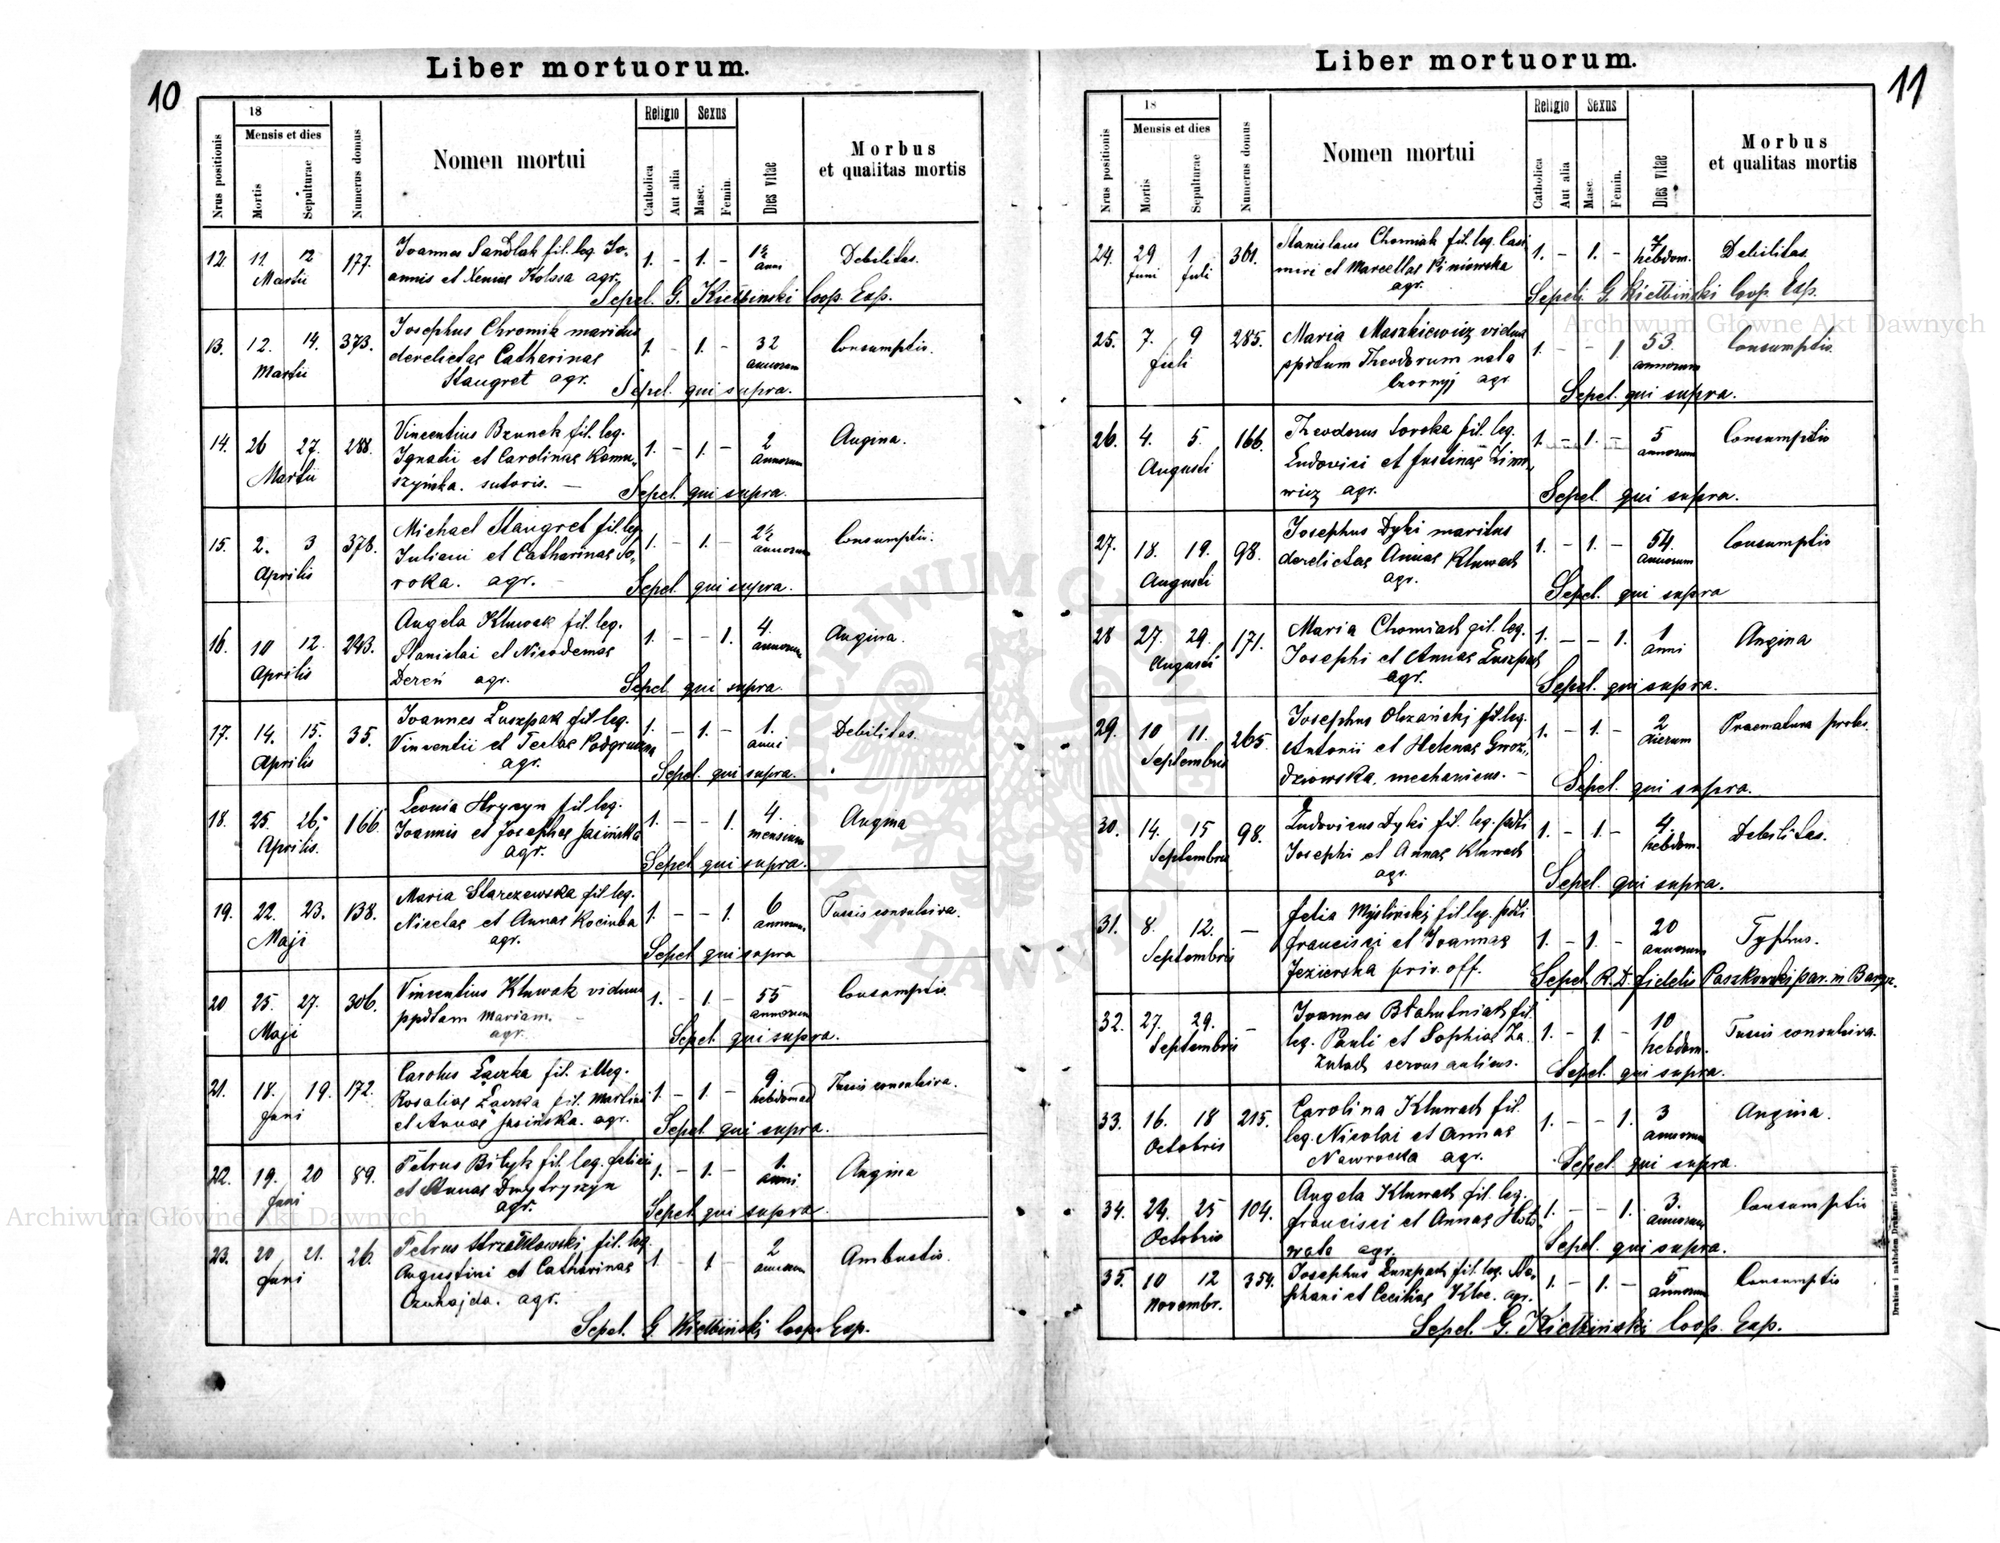 10
Liber mortuorum.
Nrus positionis
18
Mensis et dies
Mortis
Sepulturae
Numerus domus
Nomen mortui
Religio
Catholica
Aut alia
Sexus
Masc.
Femin.
Dies vitae
Morbus
et qualitas mortis
12. 11. 12 177. Joannes Sandlak fil. leg. Jo- 1. - 1. - 1½ Debilitas.
Martii annis et Xenias Kolasa agr. anni
Sepel. G. Kiełbiński Coop. Exp.
13. 12. 14. 373. Josephus Chromik maritus 1. - 1. - 32 Consumptio.
Martii derelictas Catharinas annorum
Staugret agr. Sepel. qui supra.
14. 26 27. 288. Vincentius Bzunek fil. leg. 1. - 1. - 2 Angina.
Martii Ignatii et Carolinas Komu- annorum
szyńska. sutoris. - Sepel. qui supra.
15. 2. 3 378. Michael Staugret fil. leg. 1. - 1. - 2½ Consumptio.
Aprilis Juliani et Catharinas So- annorum
roka. agr. - Sepel. qui supra.
16. 10 12. 243. Angela Kluwak fil. leg. 1. - - 1. 4. Angina.
Aprilis Stanislai et Nicodemas annorum
Dereń agr. Sepel. qui supra.
17. 14. 15. 35. Joannes Łuszpak fil. leg. 1. - 1. - 1. Debilitas.
Aprilis Vincentii et Teclas anni
agr. Sepel. qui supra.
18. 25. 26. 166. Leonia Hrycyn fil. leg. 1. - - 1. 4. Angina
Aprilis. Joannis et Josephas Jasińska mensium
agr. Sepel. qui supra.
19. 22. 23. 138. Maria Starczewska fil. leg. 1. - - 1. 6 Tussis convulsiva.
Maji Nicetas et Annas Kociuba annorum.
agr. Sepel qui supra
20 25. 27. 306. Vincentius Kluwak viduus 1. - 1. - 55 Consumptio.
Maji ppdtam Mariam. annorum
agr. Sepel qui supra.
21. 18. 19. 172. Carolus Łaczka fil. illeg. 1. - 1. - 9. Tussis convulsiva.
Juni Rosalias Łaczka fil. Martini hebdomad
et Annas Jasińska. agr. Sepel. qui supra.
22. 19. 20 89. Petrus Biłyk fil. leg. Felicis 1. - 1. - 1. Angina
Juni et Annas Dmytryszyn anni
agr. Sepel qui supra.
23. 20 21. 26. Petrus Strzałkowski fil. leg. 1. - 1 - 2 Ambustio.
Juni Augustini et Catharinas annorum
Czuhajda. agr.
Sepel. G. Kiełbiński Coop. Exp.
11
Liber mortuorum.
Nrus positionis
18
Mensis et dies
Mortis
Sepulturae
Numerus domus
Nomen mortui
Religio
Catholica
Aut alia
Sexus
Masc.
Femin.
Dies vitae
Morbus
et qualitas mortis
24. 29 1 361. Stanislaus Chomiak fil. leg. Casi 1. - 1. - 7 Debilitas.
Juni Juli miri et Marcellas Piniowska hebdom.
agr. Sepel. G. Kiełbiński Coop. Exp.
25. 7. 9 285. Maria Maszkiewicz vidua 1. - - 1. 53. Consumptio.
Juli ppdtum Theodorum nata annorum
Czornyj agr Sepel. qui supra.
26. 4. 5. 166. Theodorus Soroka fil. leg. 1. - 1. - 5 Consumptio
Augusti Ludovici et Justinas annorum
wicz agr. Sepel. qui supra.
27. 18. 19. 98. Josephus Dyki maritus 1. - 1. - 54. Consumptio
Augusti derelictas Annas Kluwach annorum
agr. Sepel qui supra
28 27. 29. 171. Maria Chomiach fil. leg. 1. - - 1. 1 Angina
Augusti Josephi et Annas Łuszpach anni
agr. Sepel. qui supra.
29. 10 11. 265. Josephus Olszański fil. leg. 1. - 1. - 2 Praematura proles.
Septembris Antonii et Helenas Gwoz- dierum
dziowska. mechanicus. - Sepel. qui supra.
30. 14. 15 98. Ludovicus Dyki fil. leg. pdti 1. - 1. - 4. Debilitas.
Septembris Josephi et Annas Kluwach hebdom.
agr. Sepel. qui supra.
31. 8. 12. - Felix Myśliński fil. leg. pdti 1. - 1. - 20 Typhus.
Septembris Francisci et Joannas annorum
Jezierska priv. off. Sepel. R. D. Fidelis Paszkowski par. in
32. 27. 29. - Joannes Błahutniach fil. 1. - 1. - 10 Tussis convulsiva.
Septembris leg. Pauli et Sophias Za hebdom.
zulach servus aulicus. Sepel. qui supra.
33. 16. 18 215. Carolina Kluwach fil. 1. - - 1. 3 Angina.
Octobris leg. Nicolai et Annas annorum
Nawrocka agr. Sepel. qui supra.
34. 24. 25 104. Angela Kluwach fil. leg. 1. - - 1. 3. Consumptio
Octobris Francisci et Annas Hoło- annorum
wata agr. Sepel. qui supra.
35. 10 12 354. Josephus Łuszpach fil. leg. Ste- 1. - 1. - 5 Consumptio
Novembr. phani et Cecilias Kloc. agr. annorum
Sepel. G. Kiełbiński Coop. Exp.
Drukiem i nakładem Drukarni Ludowej.
Archiwum Główne Akt Dawnych
Archiwum Główne Akt Dawnych